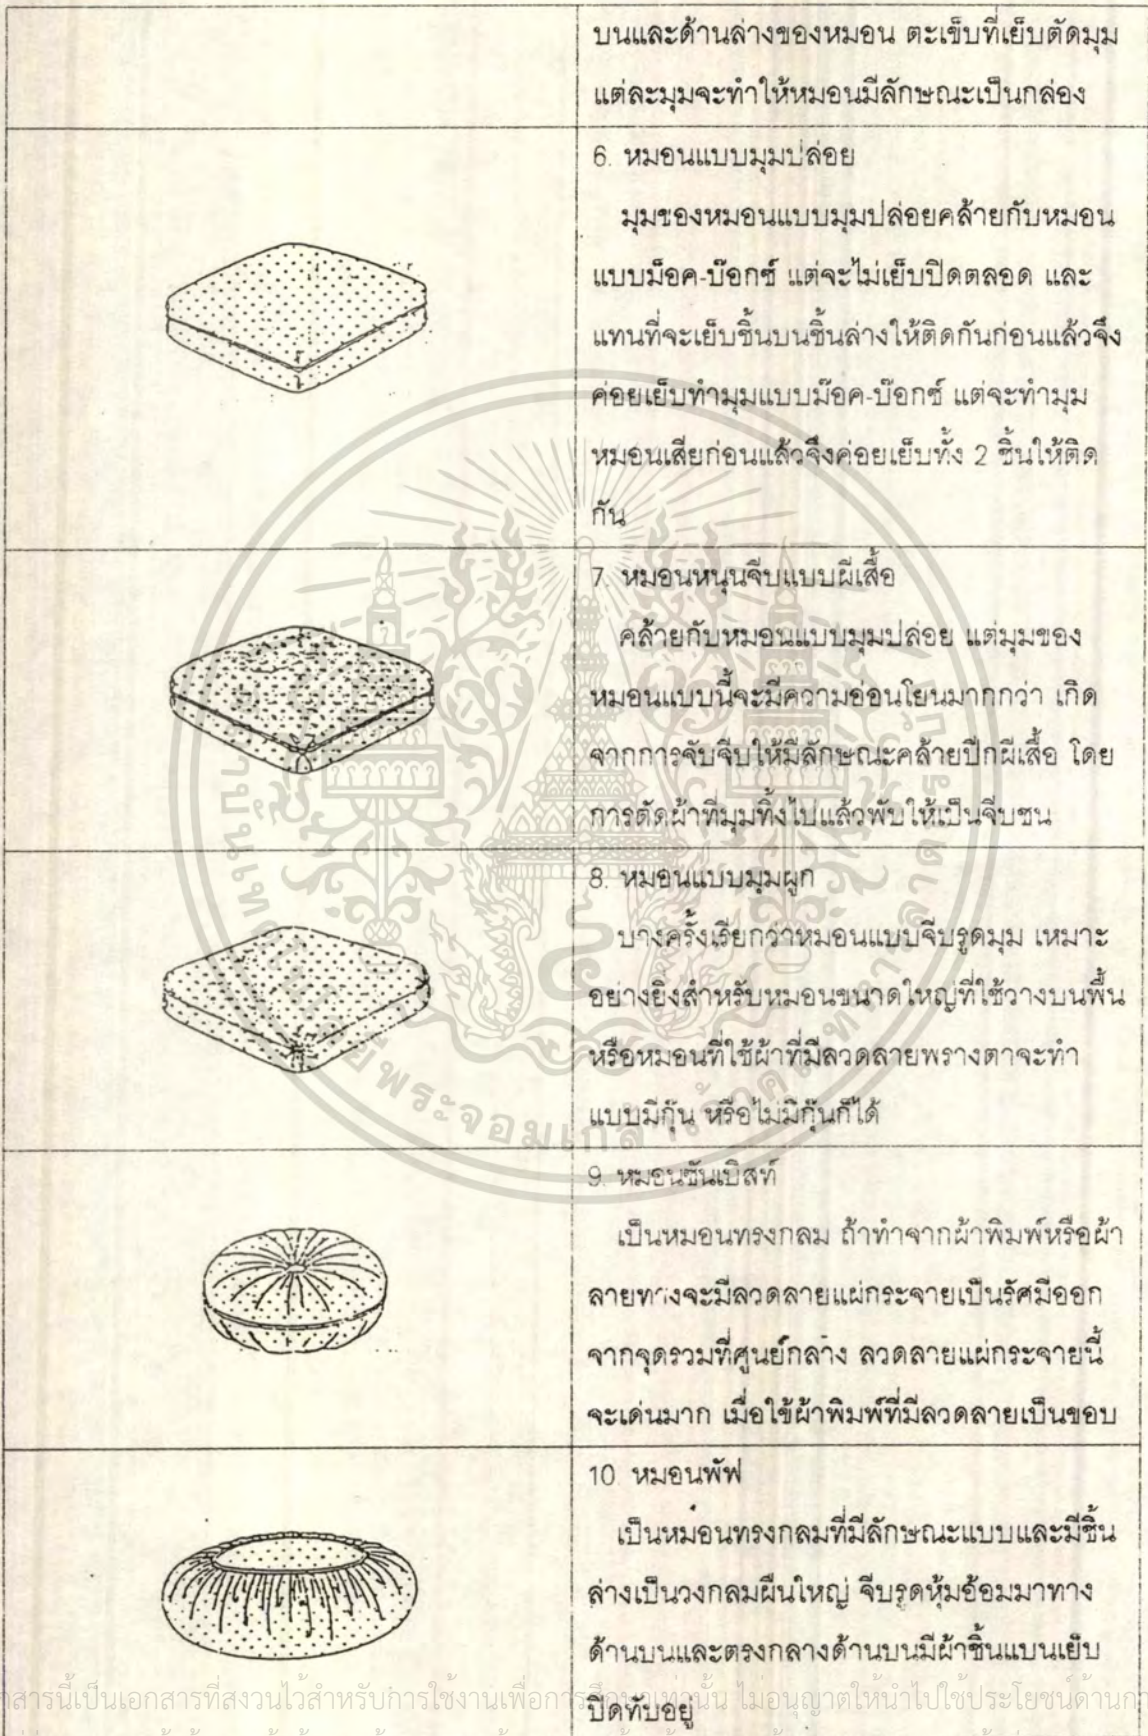 บนและด้านล่างของหมอน ตะเข็บที่เย็บตัดมุม
แต่ละมุมจะทำให้หมอนมีลักษณะเป็นกล่อง
6. หมอนแบบมุมปล่อย
มุมของหมอนแบบมุมปล่อยคล้ายกับหมอน
แบบม็อค-บ๊อกซ์ แต่จะไม่เย็บปิดตลอด และ
แทนที่จะเย็บชิ้นบนชิ้นล่างให้ติดกันก่อนแล้วจึง
ค่อยเย็บทำมุมแบบม๊อค-บ๊อกซ์ แต่จะทำมุม
หมอนเสียก่อนแล้วจึงค่อยเย็บทั้ง 2 ชิ้นให้ติด
กัน
7. หมอนหนุนจีบแบบผีเสื้อ
คล้ายกับหมอนแบบมุมปล่อย แต่มุมของ
หมอนแบบนี้จะมีความอ่อนโยนมากกว่า เกิด
จากการจับจีบให้มีลักษณะคล้ายปีกผีเสื้อ โดย
การตัดผ้าที่มุมทิ้งไปแล้วพับให้เป็นจีบชน
8. หมอนแบบมุมผูก
บางครั้งเรียกว่าหมอนแบบจีบรูดมุม เหมาะ
อย่างยิ่งสำหรับหมอนขนาดใหญ่ที่ใช้วางบนพื้น
หรือหมอนที่ใช้ผ้าที่มีลวดลายพรางตาจะทำ
แบบมีกุ๊น หรือไม่มีกุ๊นก็ได้
9. หมอนซันเบิสท์
เป็นหมอนทรงกลม ถ้าทำจากผ้าพิมพ์หรือผ้า
ลายทางจะมีลวดลายแผ่กระจายเป็นรัศมีออก
จากจุดรวมที่ศูนย์กลาง ลวดลายแผ่กระจายนี้
จะเด่นมาก เมื่อใช้ผ้าพิมพ์ที่มีลวดลายเป็นขอบ
10. หมอนพัฟ
เป็นหมอนทรงกลมที่มีลักษณะแบบและมีชิ้น
ล่างเป็นวงกลมผืนใหญ่ จีบรูดหุ้มอ้อมมาทาง
ด้านบนและตรงกลางด้านบนมีผ้าชิ้นแบนเย็บ
ปิดทับอยู่
สารนี้เป็นเอกสารที่สงวนไว้สำหรับการใช้งานเพื่อการศึกษาเท่านั้น ไม่อนุญาตให้นำไปใช้ประโยชน์ด้านกา